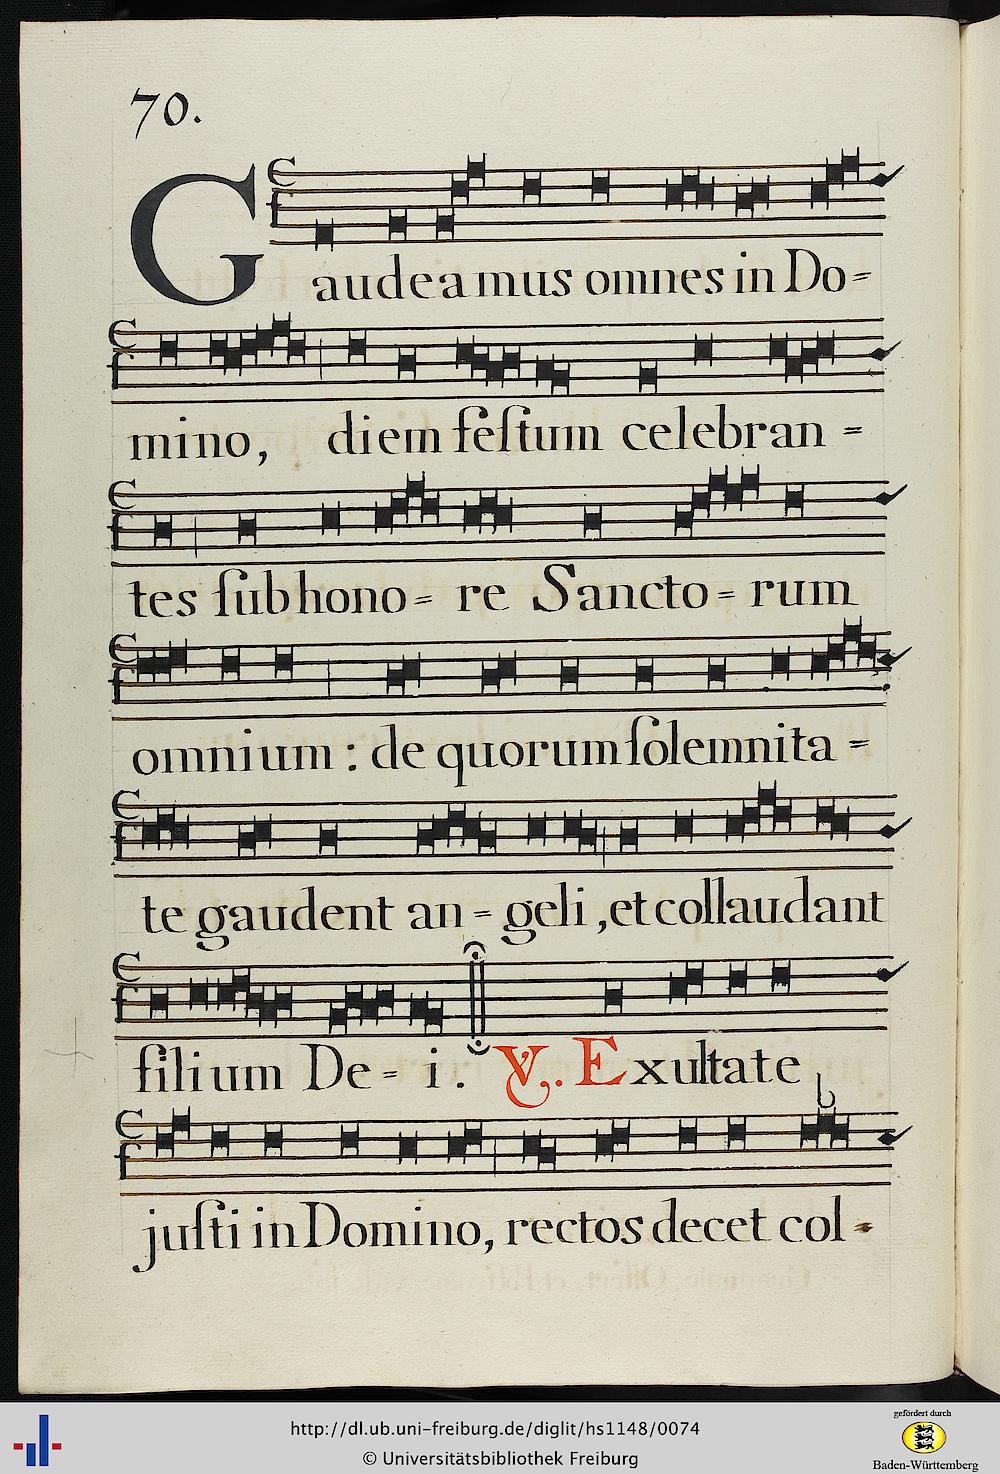 70.
Gaudeamus omnes in Do=
mino, diem feſtum celebran=
tes ſub hono= re Sancto= rum
omnium: de quorum ſolemnita=
te gaudent an= geli, et collaudant
filium De= i. V. Exultate
juſti in Domino, rectos decet col=
http://dl.ub.uni-freiburg.de/diglit/hs1148/0074
© Universitätsbibliothek Freiburg
gefördert durch
Baden-Württemberg